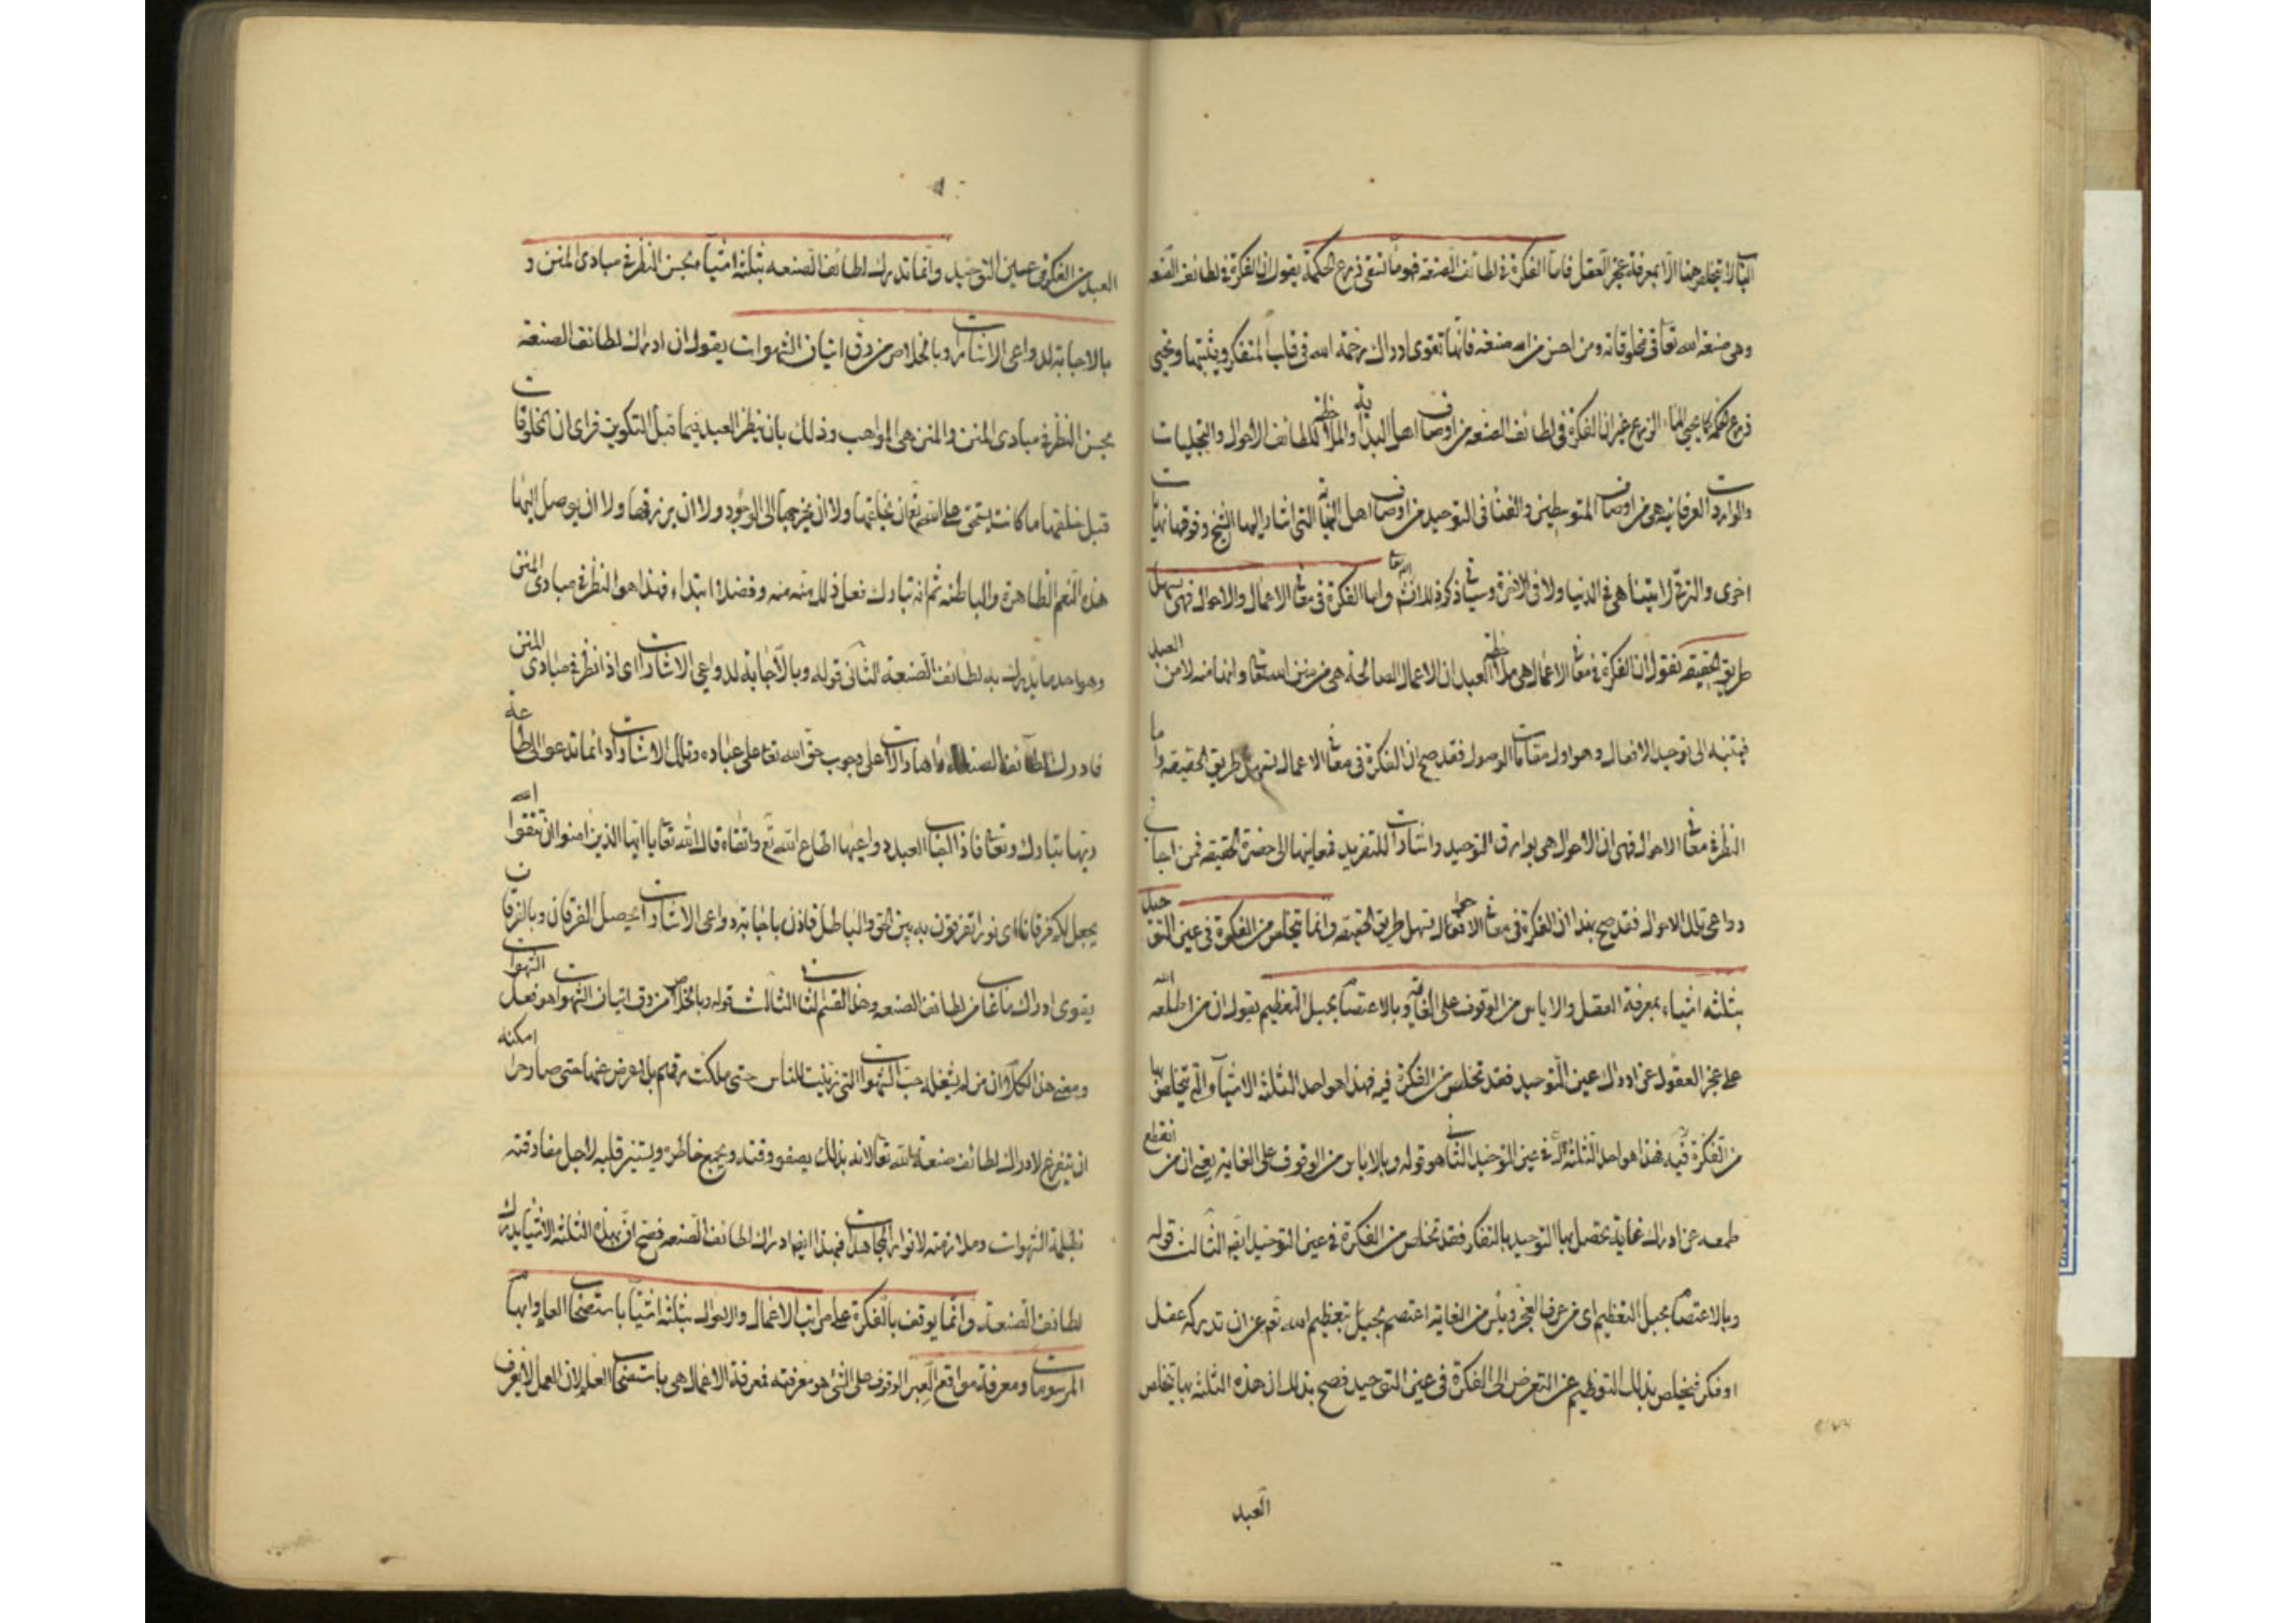 الباب لا يتخلص منها الا بمعرفة عجز العقل فاما الفكرة في لطائف الصنعة فهو ماء تسقى زرع الحكمة يقول ان الفكرة في لطائف الصنعه
وهي صنعة الله تعا في مخلوقاته ومن احسن من الله صنعة فانها تقوى ادراك رحمة الله في قلب المتفكر ويثبتها ويحيى
زرع الحكمة كما يحيى الماء الزرع غير ان الفكرة في لطائف الصنعه من اوصاف اهل البداية والملاحظة للطائف الاحوال والتجليات
والواردات العرفانيه هي من اوصاف المتوسطين والفنا في التوحيد من اوصاف اهل النهاية التي اشار اليها الشيخ وفوقها نهايات
اخرى والترقي لا يتناهى في الدنيا ولا في الاخرة وسياتي ذكره انشاء الله تعا واما الفكرة في معاني الاعمال والاحوال فهي تسهل
طريق الحقيقه نقول ان الفكرة في معاني الاعمال هي ملاحظة العبد ان الاعمال الصالحة هي من منن الله تعا وانها منه لا من العبد
فيتنبه الى توحيد الافعال وهو اول مقامات الوصول فقد صح ان الفكرة في معاني الاعمال تسهل طريق الحقيقه واما
النظر في معاني الاحوال فهي ان الاحوال هي بوارق التوحيد واشارات للتفريد فمعانيها الى حضرة الحقيقه فمن اجاب
دواعي تلك الاحوال فقد صح بهذا ان الفكرة في معاني الاحوال تسهل طريق الحقيقه وانما يتخلص من الفكرة في عين التوحيد
بثلثه اشياء بمعرفة العقل والاياس من الوقوف على الغاية وبالاعتصام بحبل التعظيم يقول ان من اطلعه الله
على عجز العقول عن ادراك عين التوحيد فقد تخلص من الفكرة فيه فهذا هو احد الثلثة الاشياء التي يتخلص بها
من الفكرة فيه فهذا هو احد الثلثة في عين التوحيد الثاني هو قوله وبالاياس من الوقوف على الغاية يعني ان من انقطع
طمعه عن ادراك غاية يحصل بها التوحيد بالتفكر فقد تخلص من الفكرة في عين التوحيد ايضا الثالث قوله
وبالاعتصام بحبل التعظيم اي من عرف العجز ويئس من الغاية اعتصم بحبل تعظيم الله تع عن ان تدركه عقل
او فكر فيخلص بذلك التعظيم عن التعرض الى الفكرة في عين التوحيد فصح بذلك ان هذه الثلثة بها يتخلص
العبد
العبد من الفكرة في عين التوحيد وانما تدرك لطائف الصنعه بثلثة اشياء بحسن النظر في مبادى المنن و
بالاجابة لدواعي الاشارات وبالخلاص من رق اتيان الشهوات يقول ان ادراك لطائف الصنعة
بحسن النظر في مبادى المنن والمنن هي المواهب وذلك بان ينظر العبد فيما قبل التكوين فراى ان المخلوقات
قبل خلقتها ما كانت يستحق على الله تع ان يخلقها ولا ان يخرجها الى الوجود ولا ان يرزقها ولا ان يوصل اليها
هذه النعم الظاهرة والباطنه ثم انه تبارك فعل ذلك منه منه وفضلا ابتداء فهذا هو النظر في مبادى المنن
وهو احد ما يدرك به لطائف الصنعة الثاني قوله وبالاجابة لدواعي الاشارات اي اذا نظر في مبادى المنن
فادرك لطائف الصنعة راها دالات على وجوب حق الله تعا على عباده وتلك الاشارات انما تدعوا الى طاعة
ربها تبارك وتعا فاذا اجاب العبد دواعيها اطاع الله تع واتقاه قال الله تعا يا ايها الذين امنوا ان تتقوا الله
يجعل لكم فرقانا اي نورا تفرقون به بين الحق والباطل فاذن باجابة دواعي الاشارات يحصل الفرقان وبالفرقان
يقوى ادراك ما غاب من لطائف الصنعه وهذا القسم الثاني الثالث قوله وبالخلاص من رق اتيان الشهوات هو فعل الشهوات
ومعنى هذا الكلام ان من لم يشغله حب الشهوات التي زينت للناس حتى ملكت رقهم بل اعرض عنها حتى صار حرا امكنه
ان يتفرغ لادراك لطائف صنعة الله تعا لانه بذلك يصفو وقته ويجمع خاطره ويستنير قلبه لاجل مفارقته
لظلمة الشهوات وملازمته لانوار المجاهدات فبهذا ايضا ادراك لطائف الصنعه فصح ان بهذه الثلثة الاشياء يدرك
لطائف الصنعة وانما يوقف بالفكرة على مراتب الاعمال والاحوال بثلثة اشياء باستصحاب العلم وابهام
المرسومات ومعرفة مواقع العبر الوقوف على الشئ هو معرفته فمعرفة الاعمال هي باستصحاب العلم لان العمل لا يعرف